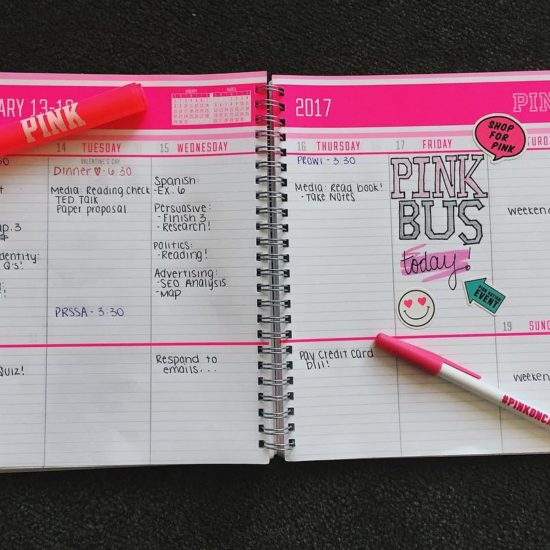 ARY 13-19
PINK
JANUARY
MARCH
14 TUESDAY
15 WEDNESDAY
VALENTINE'S DAY
Dinner ♡ 6:30
Media: Reading Check
TED Talk
Paper proposal
PRSSA - 3:30
Spanish:
-EX. 6
Persuasive:
- Finish 3
- Research!
Politics:
- Reading!
Advertising:
- SEO Analysis
- Map
ap. 3
dentity:
Q's!
QUIZ!
Respond to
emails...
2017
PIN
16 THURSDAY
17 FRIDAY
ATUR
PROWI - 3:30
Media: Read book!
- Take Notes
Pay Credit Card
bill!
SHOP
FOR
PINK
PINK
BUS
today!
EVENT
weeken
19 SUN
weeken
#PINKONCA